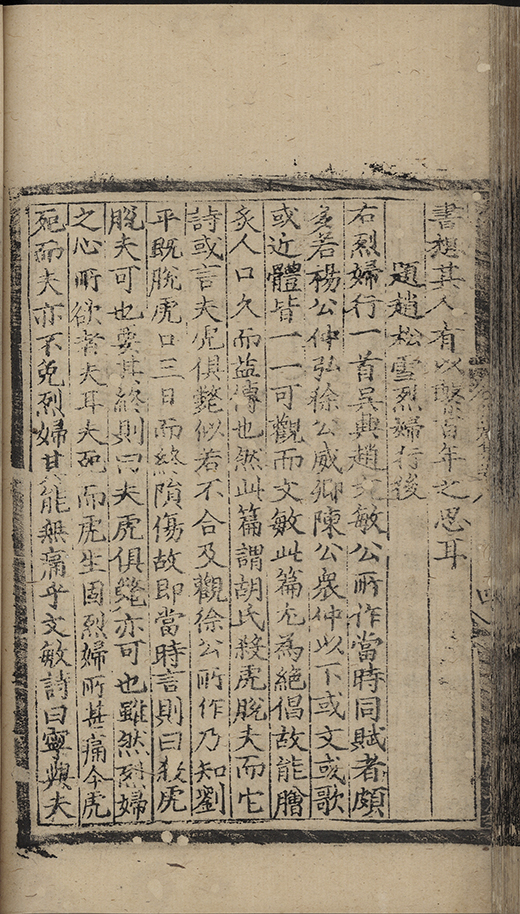 書想其人有以繫百年之思耳
題趙松雪烈婦行後
右烈婦行一首吳興趙文敏公所作當時同賦者頗
多若楊公仲弘徐公威卿陳公衆仲以下或文或歌
或近體皆一一可觀而文敏此篇尤為絕倡故能膾
炙人口久而益傳也然此篇謂胡氏殺虎脫夫而它
詩或言夫虎俱斃似若不合及觀徐公所作乃知劉
平既脫虎口三日而終隋傷故即當時言則曰殺虎
脫夫可也要其終則曰夫虎俱斃亦可也雖然烈婦
之心所欲者夫耳夫死而虎生固烈婦所甚痛今虎
死而夫亦不免烈婦其能無痛乎文敏詩曰寧與夫